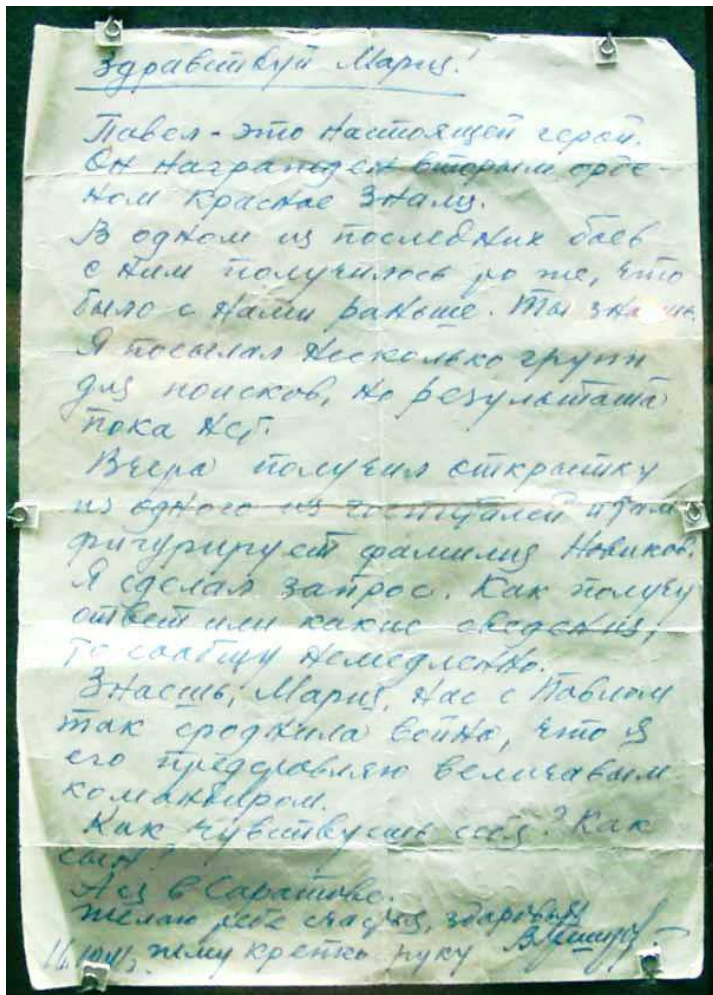 Здравствуй Мария!
Павел - это настоящей герой.
Он награжден вторым орде-
ном Красное Знамя.
В одном из последних боев
с ним получилось то же, что
было с нами раньше. Ты знаешь.
Я посылал несколько групп
для поисков, но результата
пока нет.
Вчера получил открытку
из одного из госпиталей и там
фигурирует фамилия Новиков.
Я сделал запрос. Как получу
ответ или какие сведения,
то сообщу немедленно.
Знаешь, Мария, нас с Павлом
так сроднила война, что я
его представляю величавым
командиром.
Как чувствуешь себя? Как
сын?
Ася в Саратове.
Желаю тебе счастья, здоровья
жму крепко руку